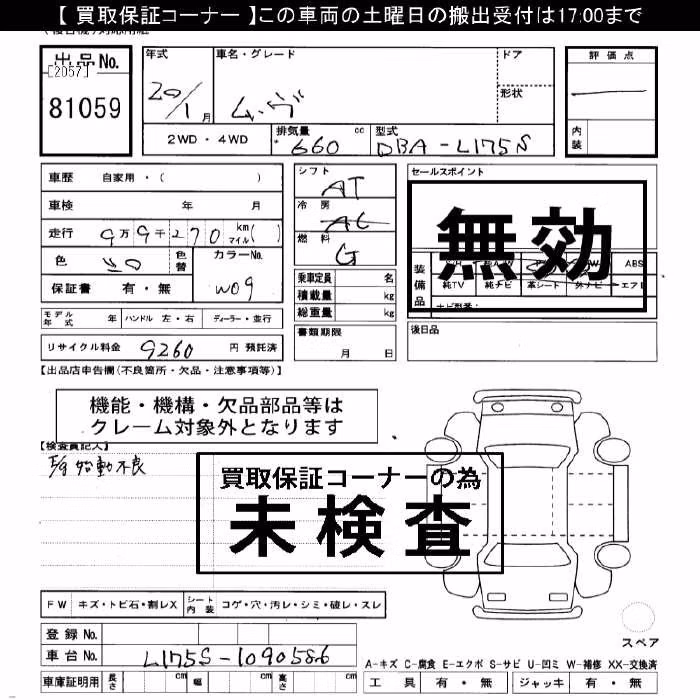 【 買取保証コーナー 】この車両の土曜日の搬出受付は17:00まで
出品No.
[2057]
81059
年式
20/1月
車名・グレード
ムーヴ
ドア
形状
評価点
内装
2WD・4WD
排気量 cc
660
型式
DBA-L175S
車歴 自家用・( )
車検 年 月
走行 9万9千270 km マイル( )
色 シロ 色替
カラーNo.
W09
保証書 有・無
シフト
AT
冷房
AC
燃料
G
乗車定員 名
積載量 kg
総重量 kg
書類期限
月 日
セールスポイント
無効
装備品
ABS
純TV 純ナビ 革シート 外ナビ エアB
ナビ型番:
後日品
モデル年式 年 ハンドル 左・右 ディーラー・並行
リサイクル料金 9260 円 預託済
【出品店申告欄(不良箇所・欠品・注意事項等)】
機能・機構・欠品部品等は
クレーム対象外となります
【検査員記入】
始動不良
買取保証コーナーの為
未検査
FW キズ・トビ石・割レX
シート内装 コゲ・穴・汚レ・シミ・破レ・スレ
登録No.
車台No. L175S-1090586
車庫証明用 長さ cm 幅 cm 高さ cm
スペア
A-キズ C-腐食 E-エクボ S-サビ U-凹ミ W-補修 XX-交換済
工具 有・無 ジャッキ 有・無